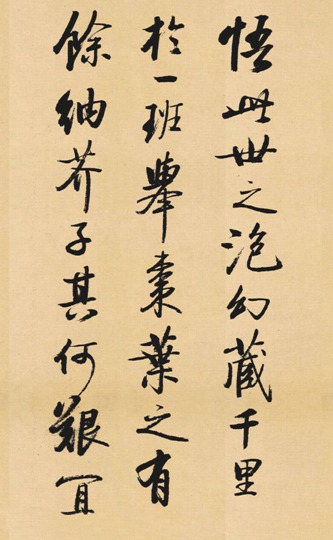 悟此世之泡幻藏千里
於一班舉棗葉之有
餘納芥子其何艱宜